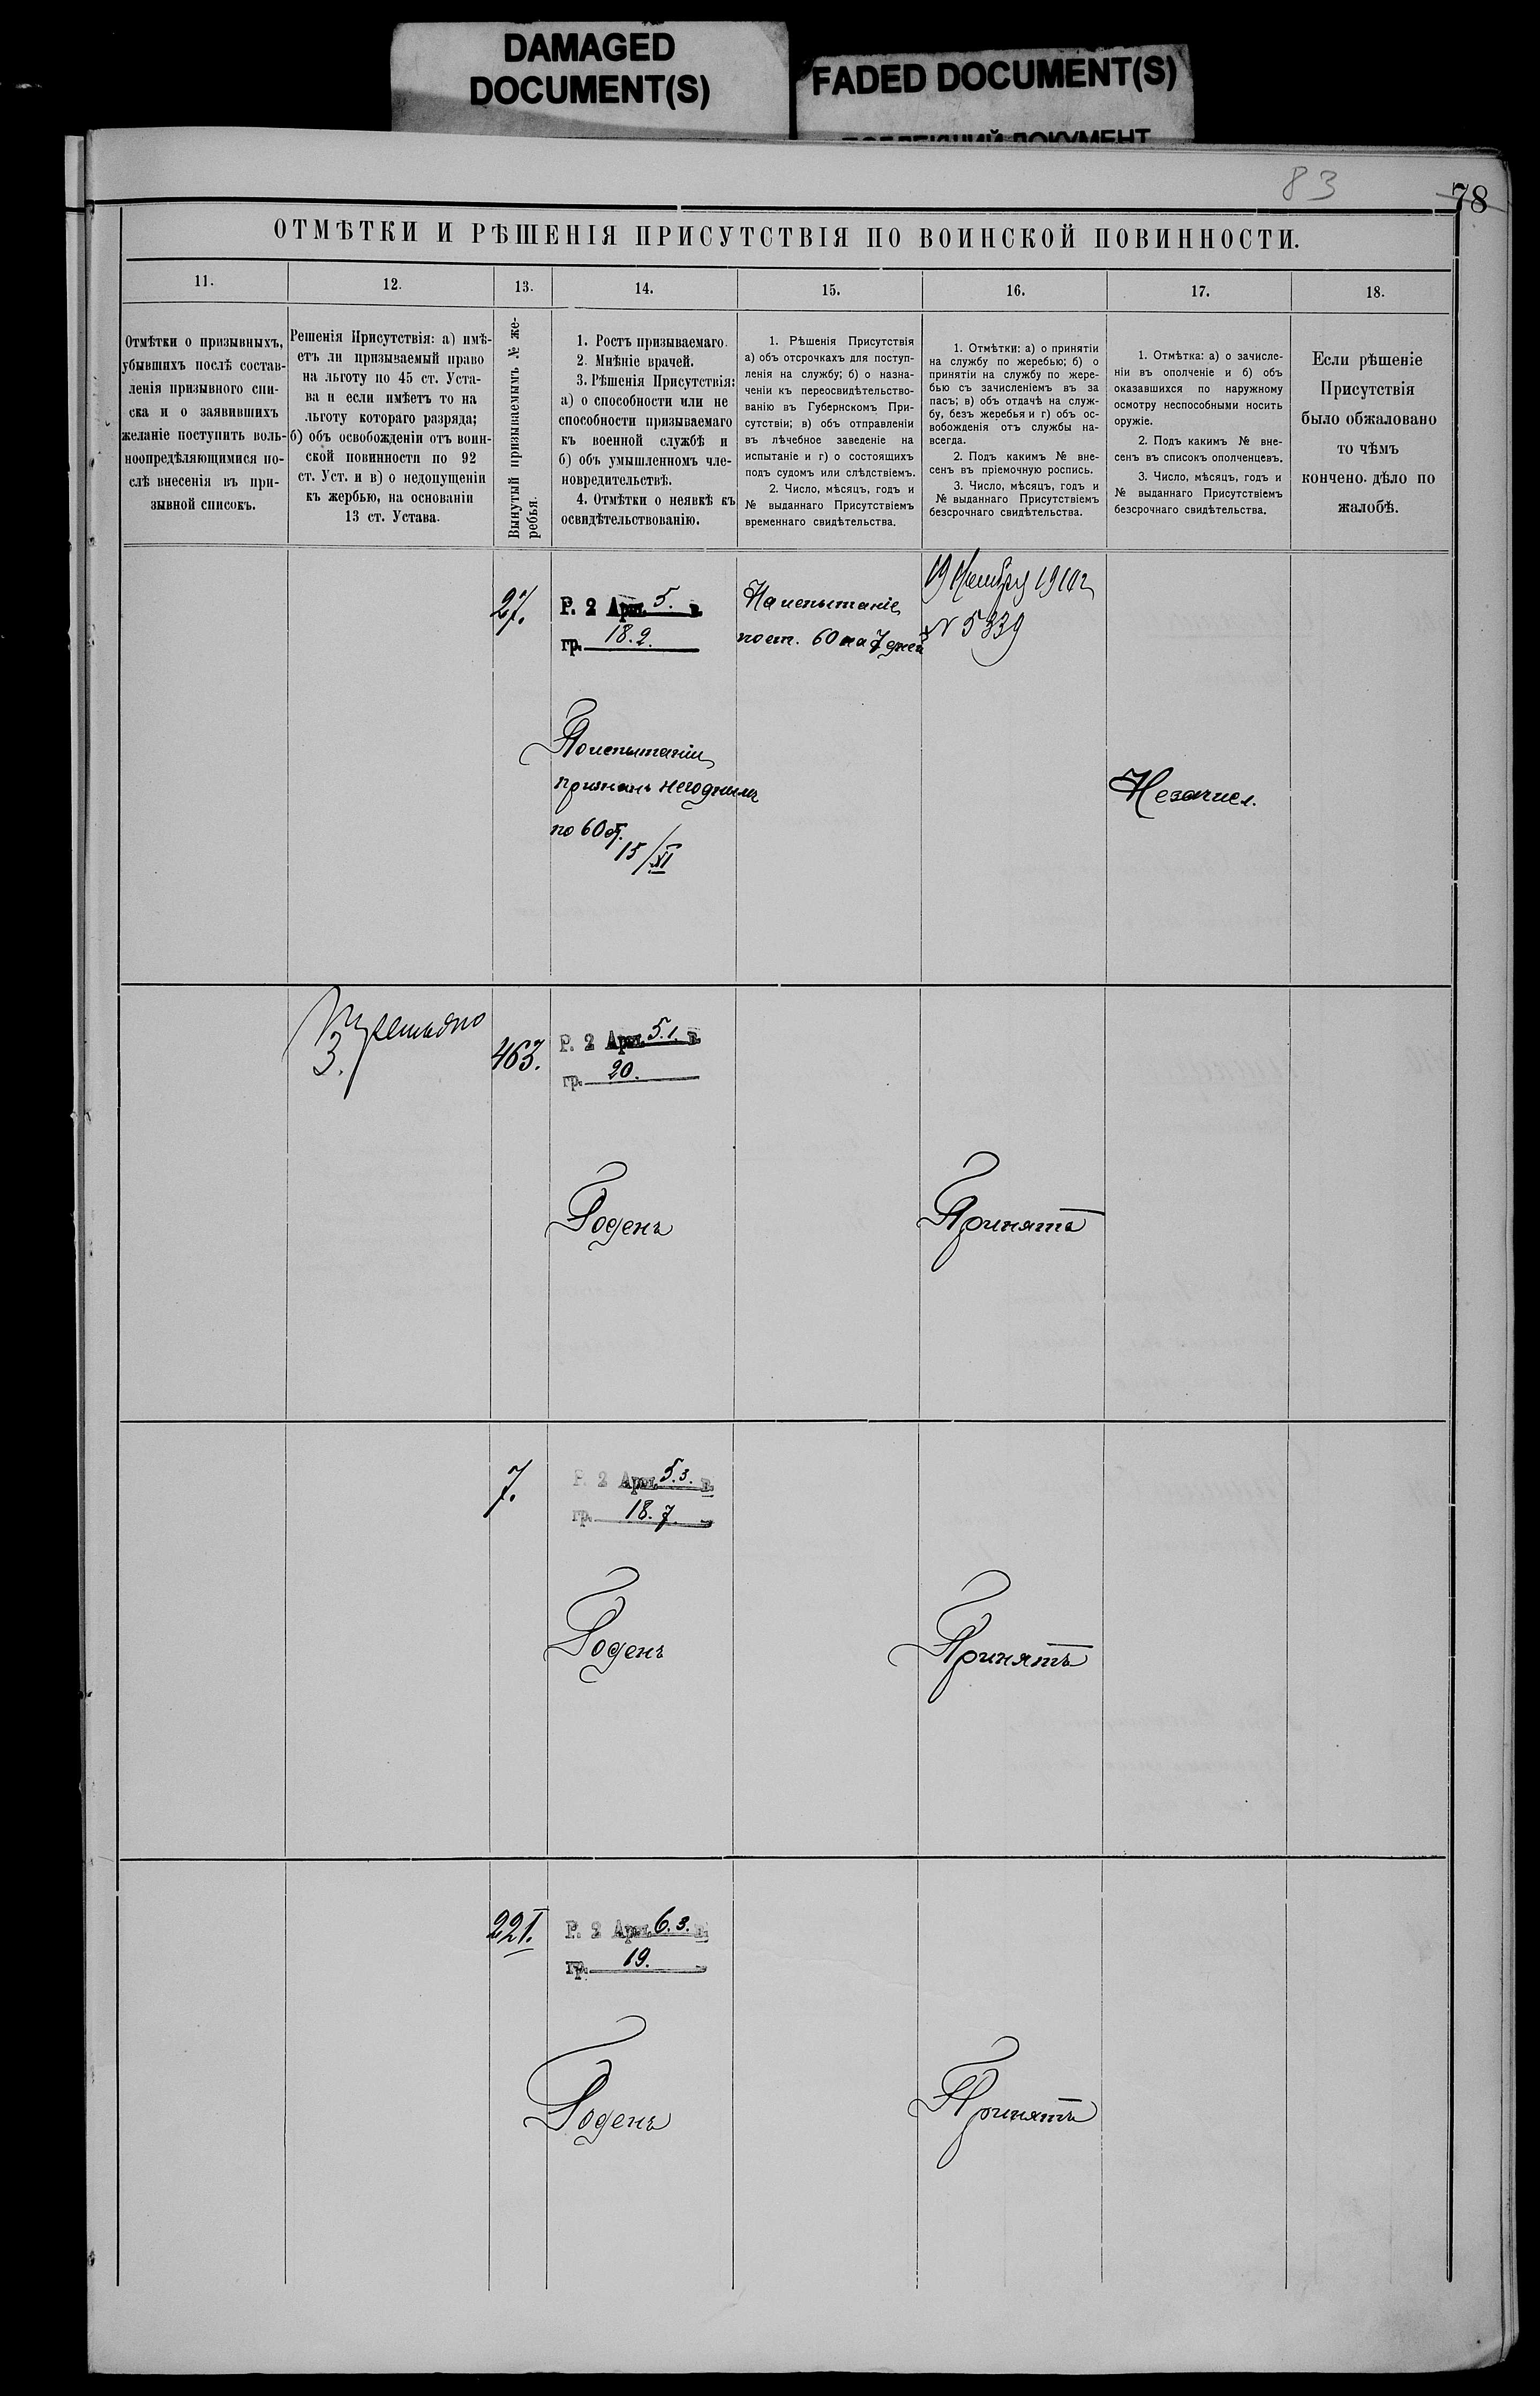 DAMAGED
DOCUMENT(S)
FADED DOCUMENT(S)
83
78
ОТМѢТКИ И РѢШЕНІЯ ПРИСУТСТВІЯ ПО ВОИНСКОЙ ПОВИННОСТИ.
11.
Отмѣтки о призывныхъ,
убывшихъ послѣ состав-
ленія призывного спи-
ска и о заявившихъ
желаніе поступить воль-
ноопредѣляющимися по-
слѣ внесенія въ при-
зывной списокъ.
12.
Решенія Присутствія: а) имѣ-
етъ ли призываемый право
на льготу по 45 ст. Уста-
ва и если имѣетъ то на
льготу котораго разряда;
б) объ освобожденіи отъ воин-
ской повинности по 92
ст. Уст. и в) о недопущеніи
къ жербью, на основаніи
13 ст. Устава.
13.
Вынутый призываемымъ № же-
ребья.
14.
1. Ростъ призываемаго.
2. Мнѣніе врачей.
3. Рѣшенія Присутствія:
а) о способности или не
способности призываемаго
къ военной службѣ и
б) объ умышленномъ чле-
новредительствѣ.
4. Отмѣтки о неявкѣ къ
освидѣтельствованію.
15.
1. Рѣшенія Присутствія
а) объ отсрочкахъ для поступ-
ленія на службу; б) о назна-
ченіи къ переосвидѣтельство-
ванію въ Губернскомъ При-
сутствіи; в) объ отправленіи
въ лѣчебное заведеніе на
испытаніе и г) о состоящихъ
подъ судомъ или слѣдствіемъ.
2. Число, мѣсяцъ, годъ и
№ выданнаго Присутствіемъ
временнаго свидѣтельства.
16.
1. Отмѣтки: а) о принятіи
на службу по жеребью; б) о
принятіи на службу по жере-
бью съ зачисленіемъ въ за
пасъ; в) объ отдачѣ на служ-
бу, безъ жеребья и г) объ ос-
вобожденія отъ службы на-
всегда.
2. Подъ какимъ № вне-
сенъ въ пріемочную роспись.
3. Число, мѣсяцъ, годъ и
№ выданнаго Присутствіемъ
безсрочнаго свидѣтельства.
17.
1. Отмѣтка: а) о зачисле-
ніи въ ополченіе и б) объ
оказавшихся по наружному
осмотру неспособными носить
оружіе.
2. Подъ какимъ № вне-
сенъ въ список ополченцевъ.
3. Число, мѣсяцъ, годъ и
№ выданнаго Присутствіемъ
безсрочнаго свидѣтельства.
18.
Если рѣшеніе
Присутствія
было обжаловано
то чѣмъ
кончено. дѣло по
жалобѣ.
27.
Р. 2 Арш. 5. в.
гр. 18.2.
На испытаніе
по ст. 60 на 7 дней
№ 5339
По испытаніи
признанъ негоднымъ
по 60 ст.
15/XI
Незачисл.
3.
463.
Р. 2 Арш. 5.1. в.
гр. 20.
Годенъ
Принятъ
7.
Р. 2 Арш. 5.3. в.
гр. 18.7.
Годенъ
Принятъ
221.
Р. 2 Арш. 6.3. в.
гр. 19.
Годенъ
Принятъ